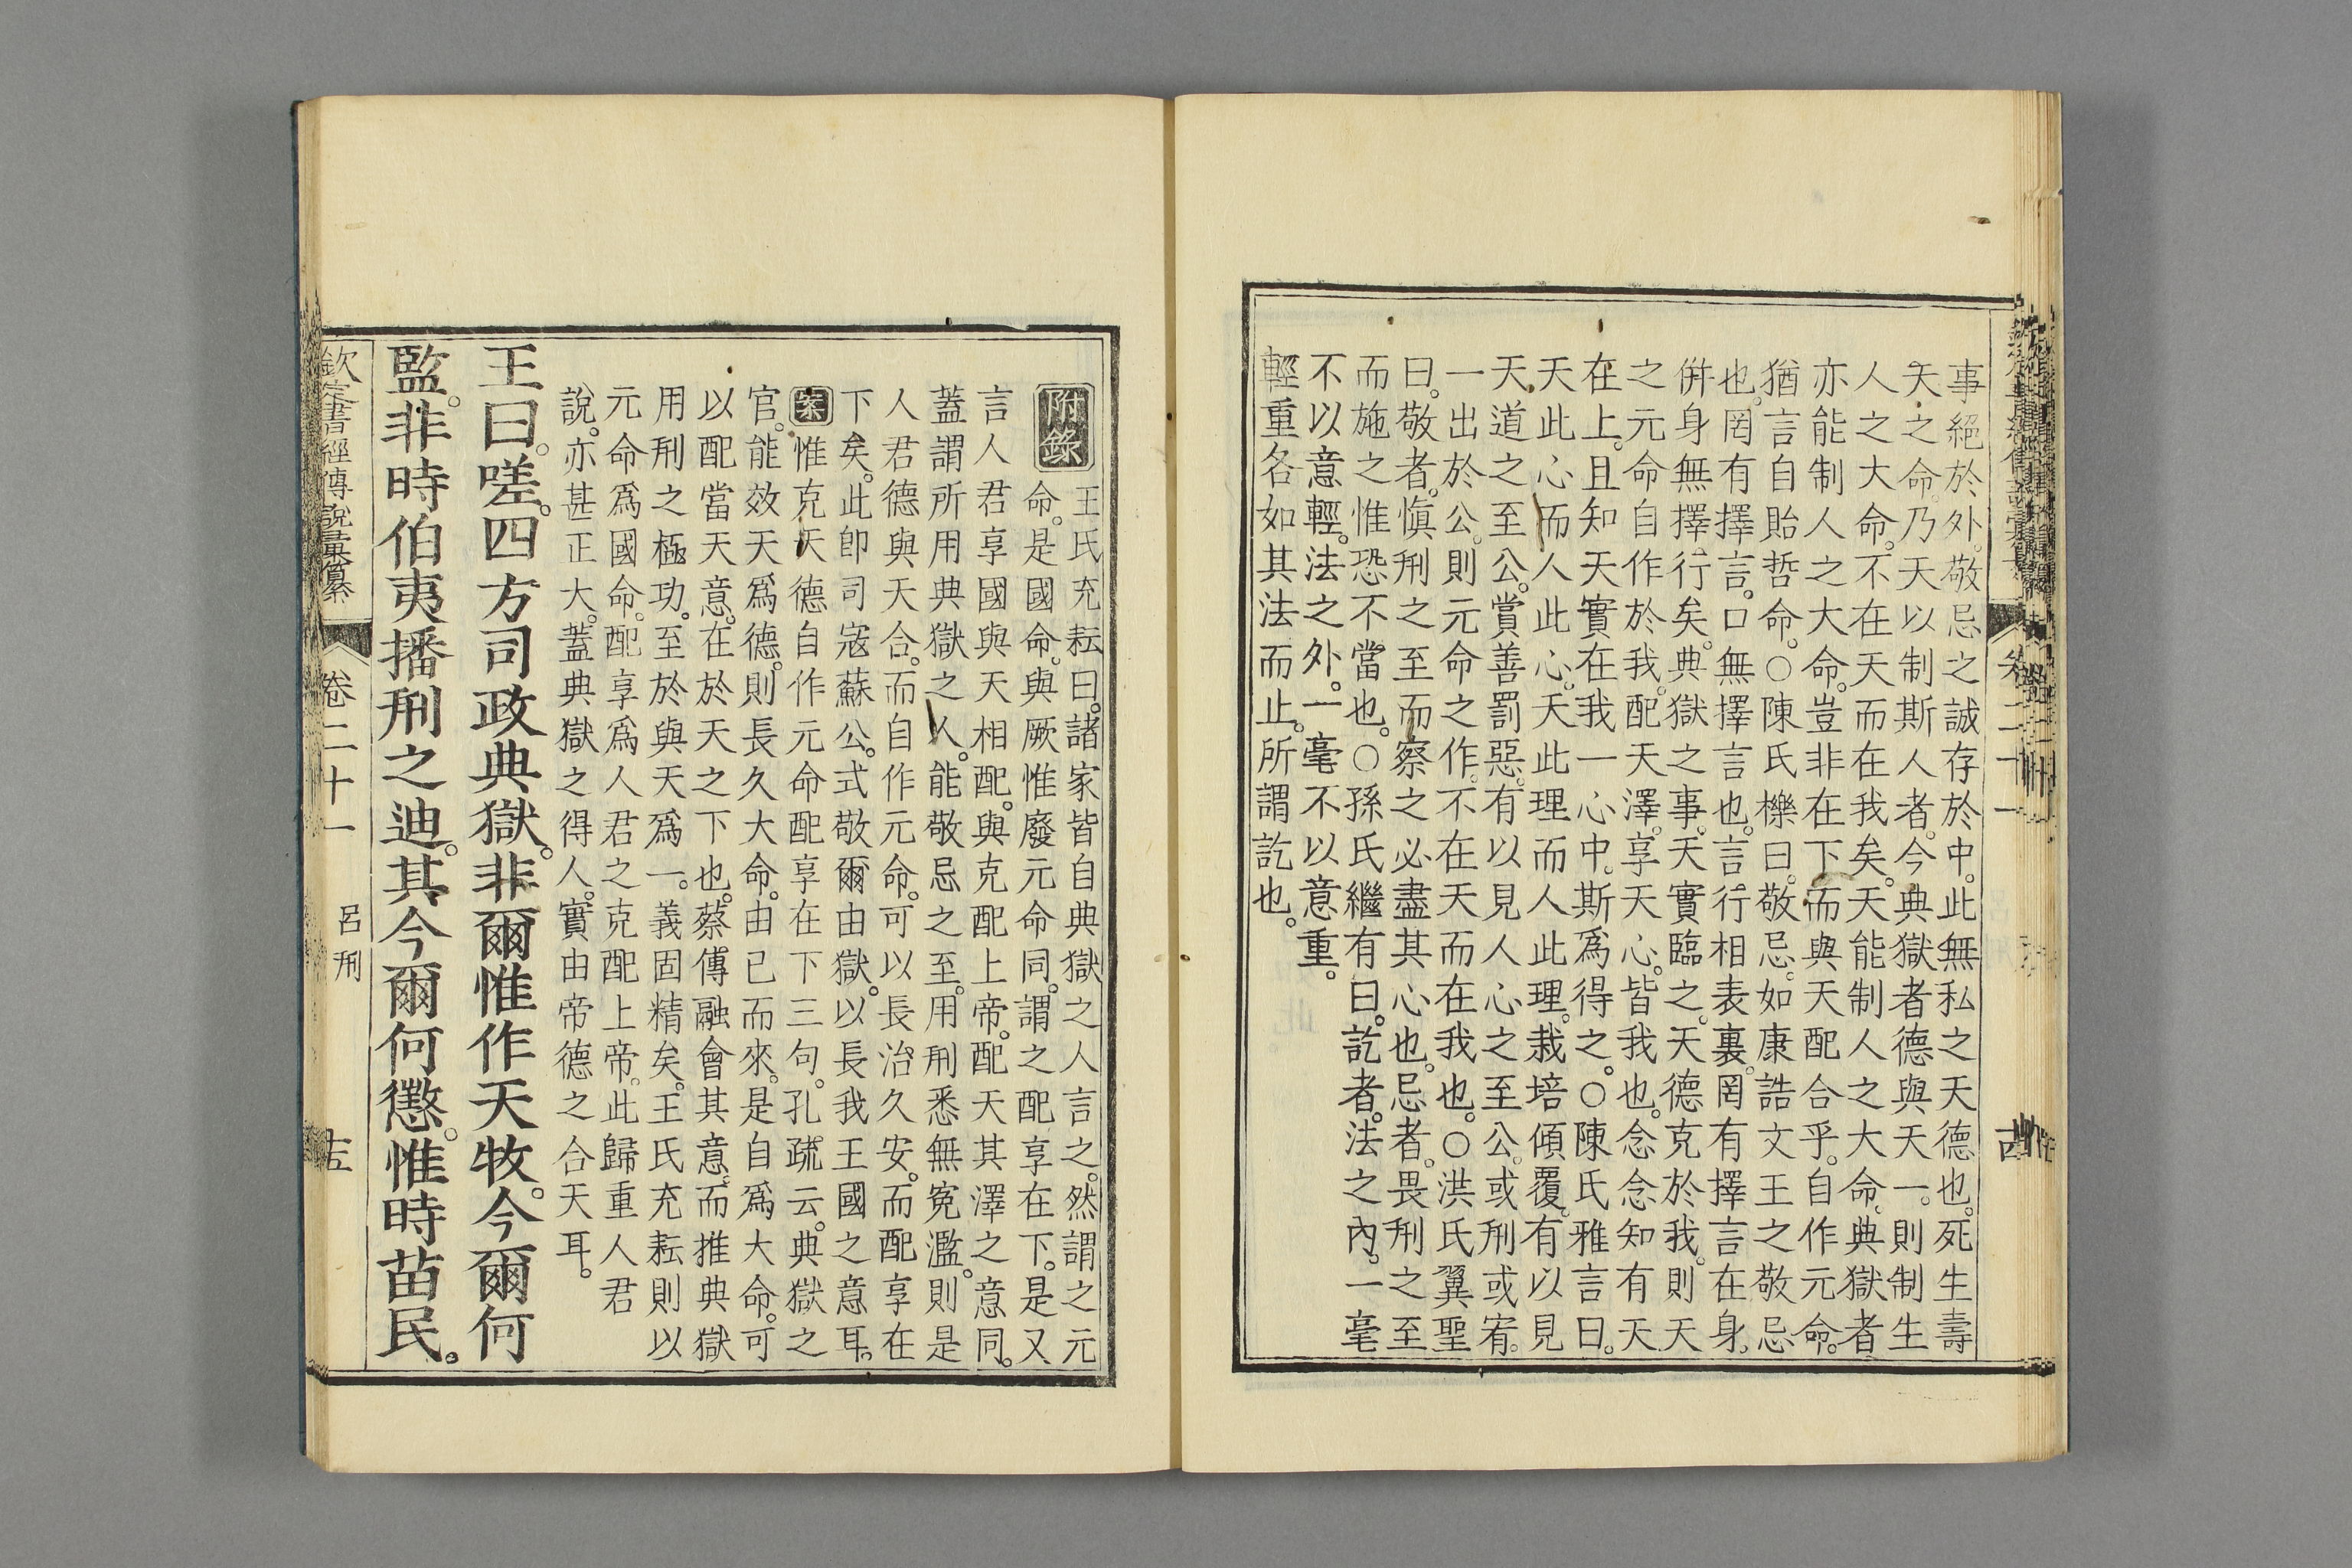 事絕於外。敬忌之誠存於中。此無私之天德也。死生壽
夭之命。乃天以制斯人者。今典獄者德與天一。則制生
人之大命。不在天而在我矣。天能制人之大命。典獄者
亦能制人之大命。豈非在下而與天配合乎。自作元命。
猶言自貽哲命。○陳氏櫟曰。敬忌。如康誥文王之敬忌
也。罔有擇言。口無擇言也。言行相表裏。罔有擇言在身。
倂身無擇行矣。典獄之事。天實臨之。天德克於我。則天
之元命自作於我。配天澤。享天心。皆我也。念念知有天
在上。且知天實在我一心中。斯爲得之。○陳氏雅言曰。
天此心而人此心。天此理而人此理。栽培傾覆。有以見
天道之至公。賞善罰惡。有以見人心之至公。或刑或宥。
一出於公。則元命之作。不在天而在我也。○洪氏翼聖
曰。敬者。愼刑之至而察之必盡其心也。忌者。畏刑之至
而施之惟恐不當也。○孫氏繼有曰。訖者。法之內。一毫
不以意輕。法之外。一毫不以意重。
輕重各如其法而止。所謂訖也。
附錄
王氏充耘曰。諸家皆自典獄之人言之。然謂之元
命。是國命。與厥惟廢元命同。謂之配享在下。是又
言人君享國與天相配。與克配上帝。配天其澤之意同。
蓋謂所用典獄之人。能敬忌之至。用刑悉無冤濫。則是
人君德與天合。而自作元命。可以長治久安。而配享在
下矣。此卽司寇蘇公。式敬爾由獄。以長我王國之意耳。
案 惟克天德自作元命配享在下三句。孔疏云。典獄之
官。能效天爲德。則長久大命。由已而來。是自爲大命。可
以配當天意。在於天之下也。蔡傳融會其意。而推典獄
用刑之極功。至於與天爲一。義固精矣。王氏充耘則以
元命爲國命。配享爲人君之克配上帝。此歸重人君
說。亦甚正大。蓋典獄之得人。實由帝德之合天耳。
王曰。嗟。四方司政典獄。非爾惟作天牧。今爾何
監。非時伯夷播刑之迪。其今爾何懲。惟時苗民。
欽定書經傳說彙纂 卷二十一 呂刑 十五